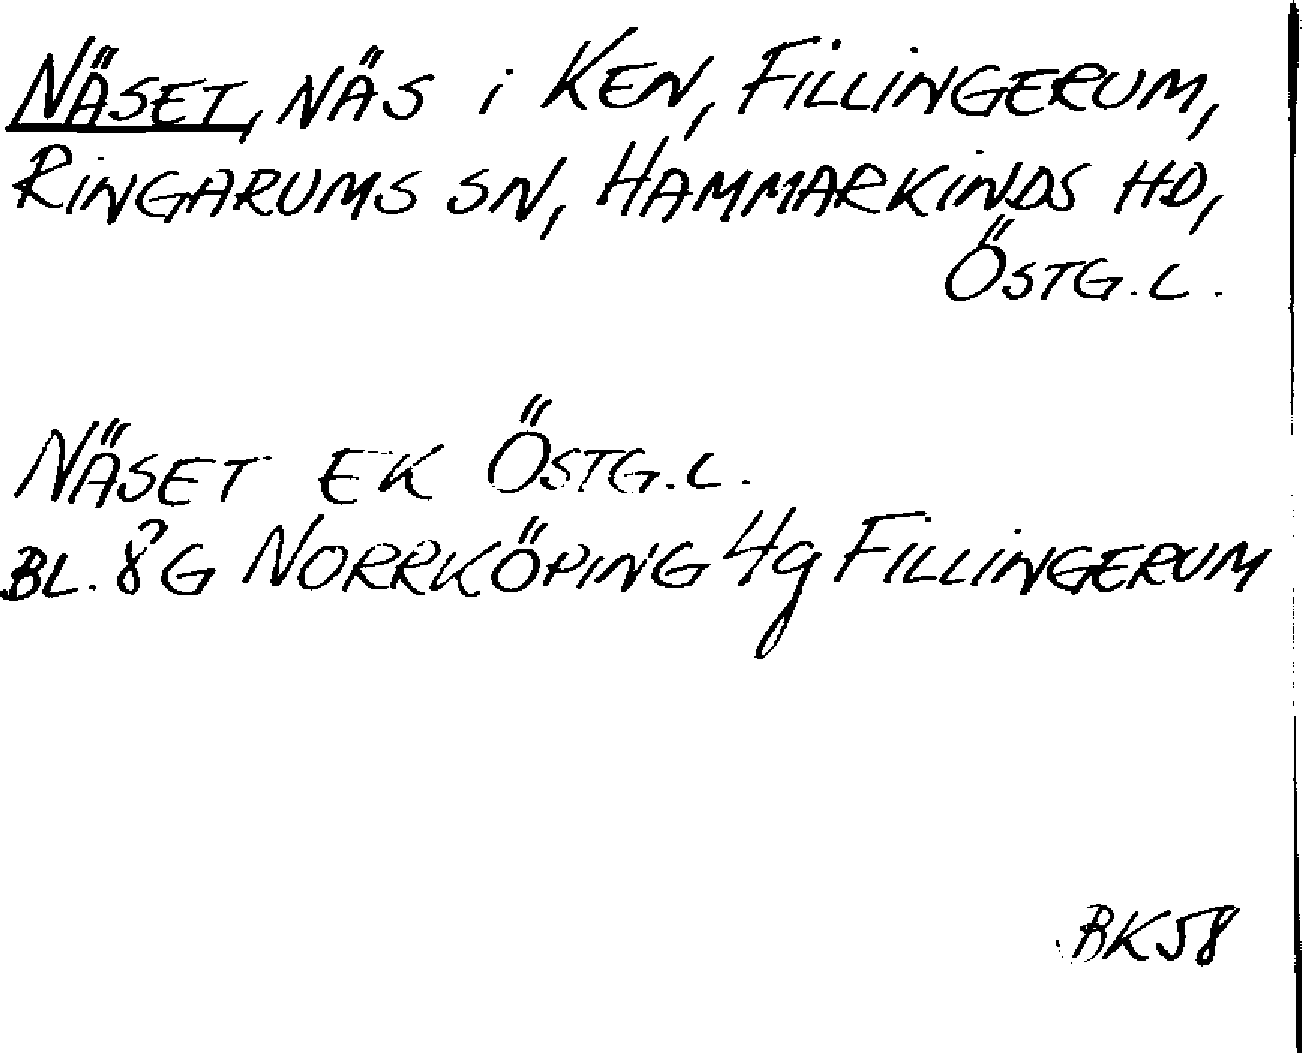 NÄSET, NÄS i KEN, FILLINGERUM,
RINGARUMS SN, HAMMARKINDS HD,
ÖSTG.L.
NÄSET EK ÖSTG.L.
BL. 8G NORRKÖPING 4g FILLINGERUM
RK58